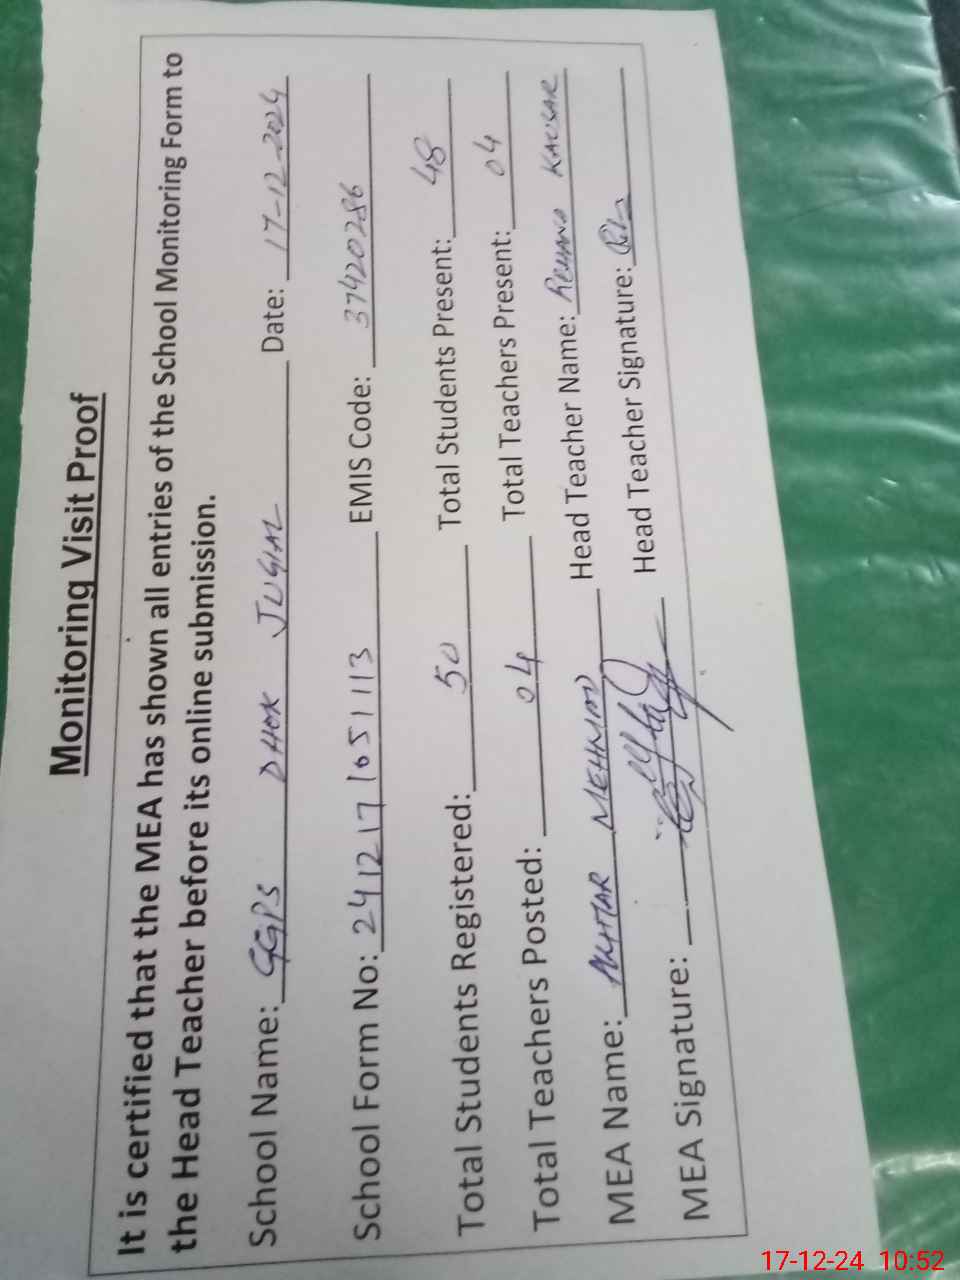 Monitoring Visit Proof
It is certified that the MEA has shown all entries of the School Monitoring Form to
the Head Teacher before its online submission.
School Name: GGPS DHOK JUGIAL Date: 17-12-2024
School Form No: 241217 1051113 EMIS Code: 37420286
Total Students Registered: 50 Total Students Present: 48
Total Teachers Posted: 04 Total Teachers Present: 04
MEA Name: AKHTAR MEHMOOD Head Teacher Name: KAUSAR
MEA Signature: Head Teacher Signature:
17-12-24 10:52